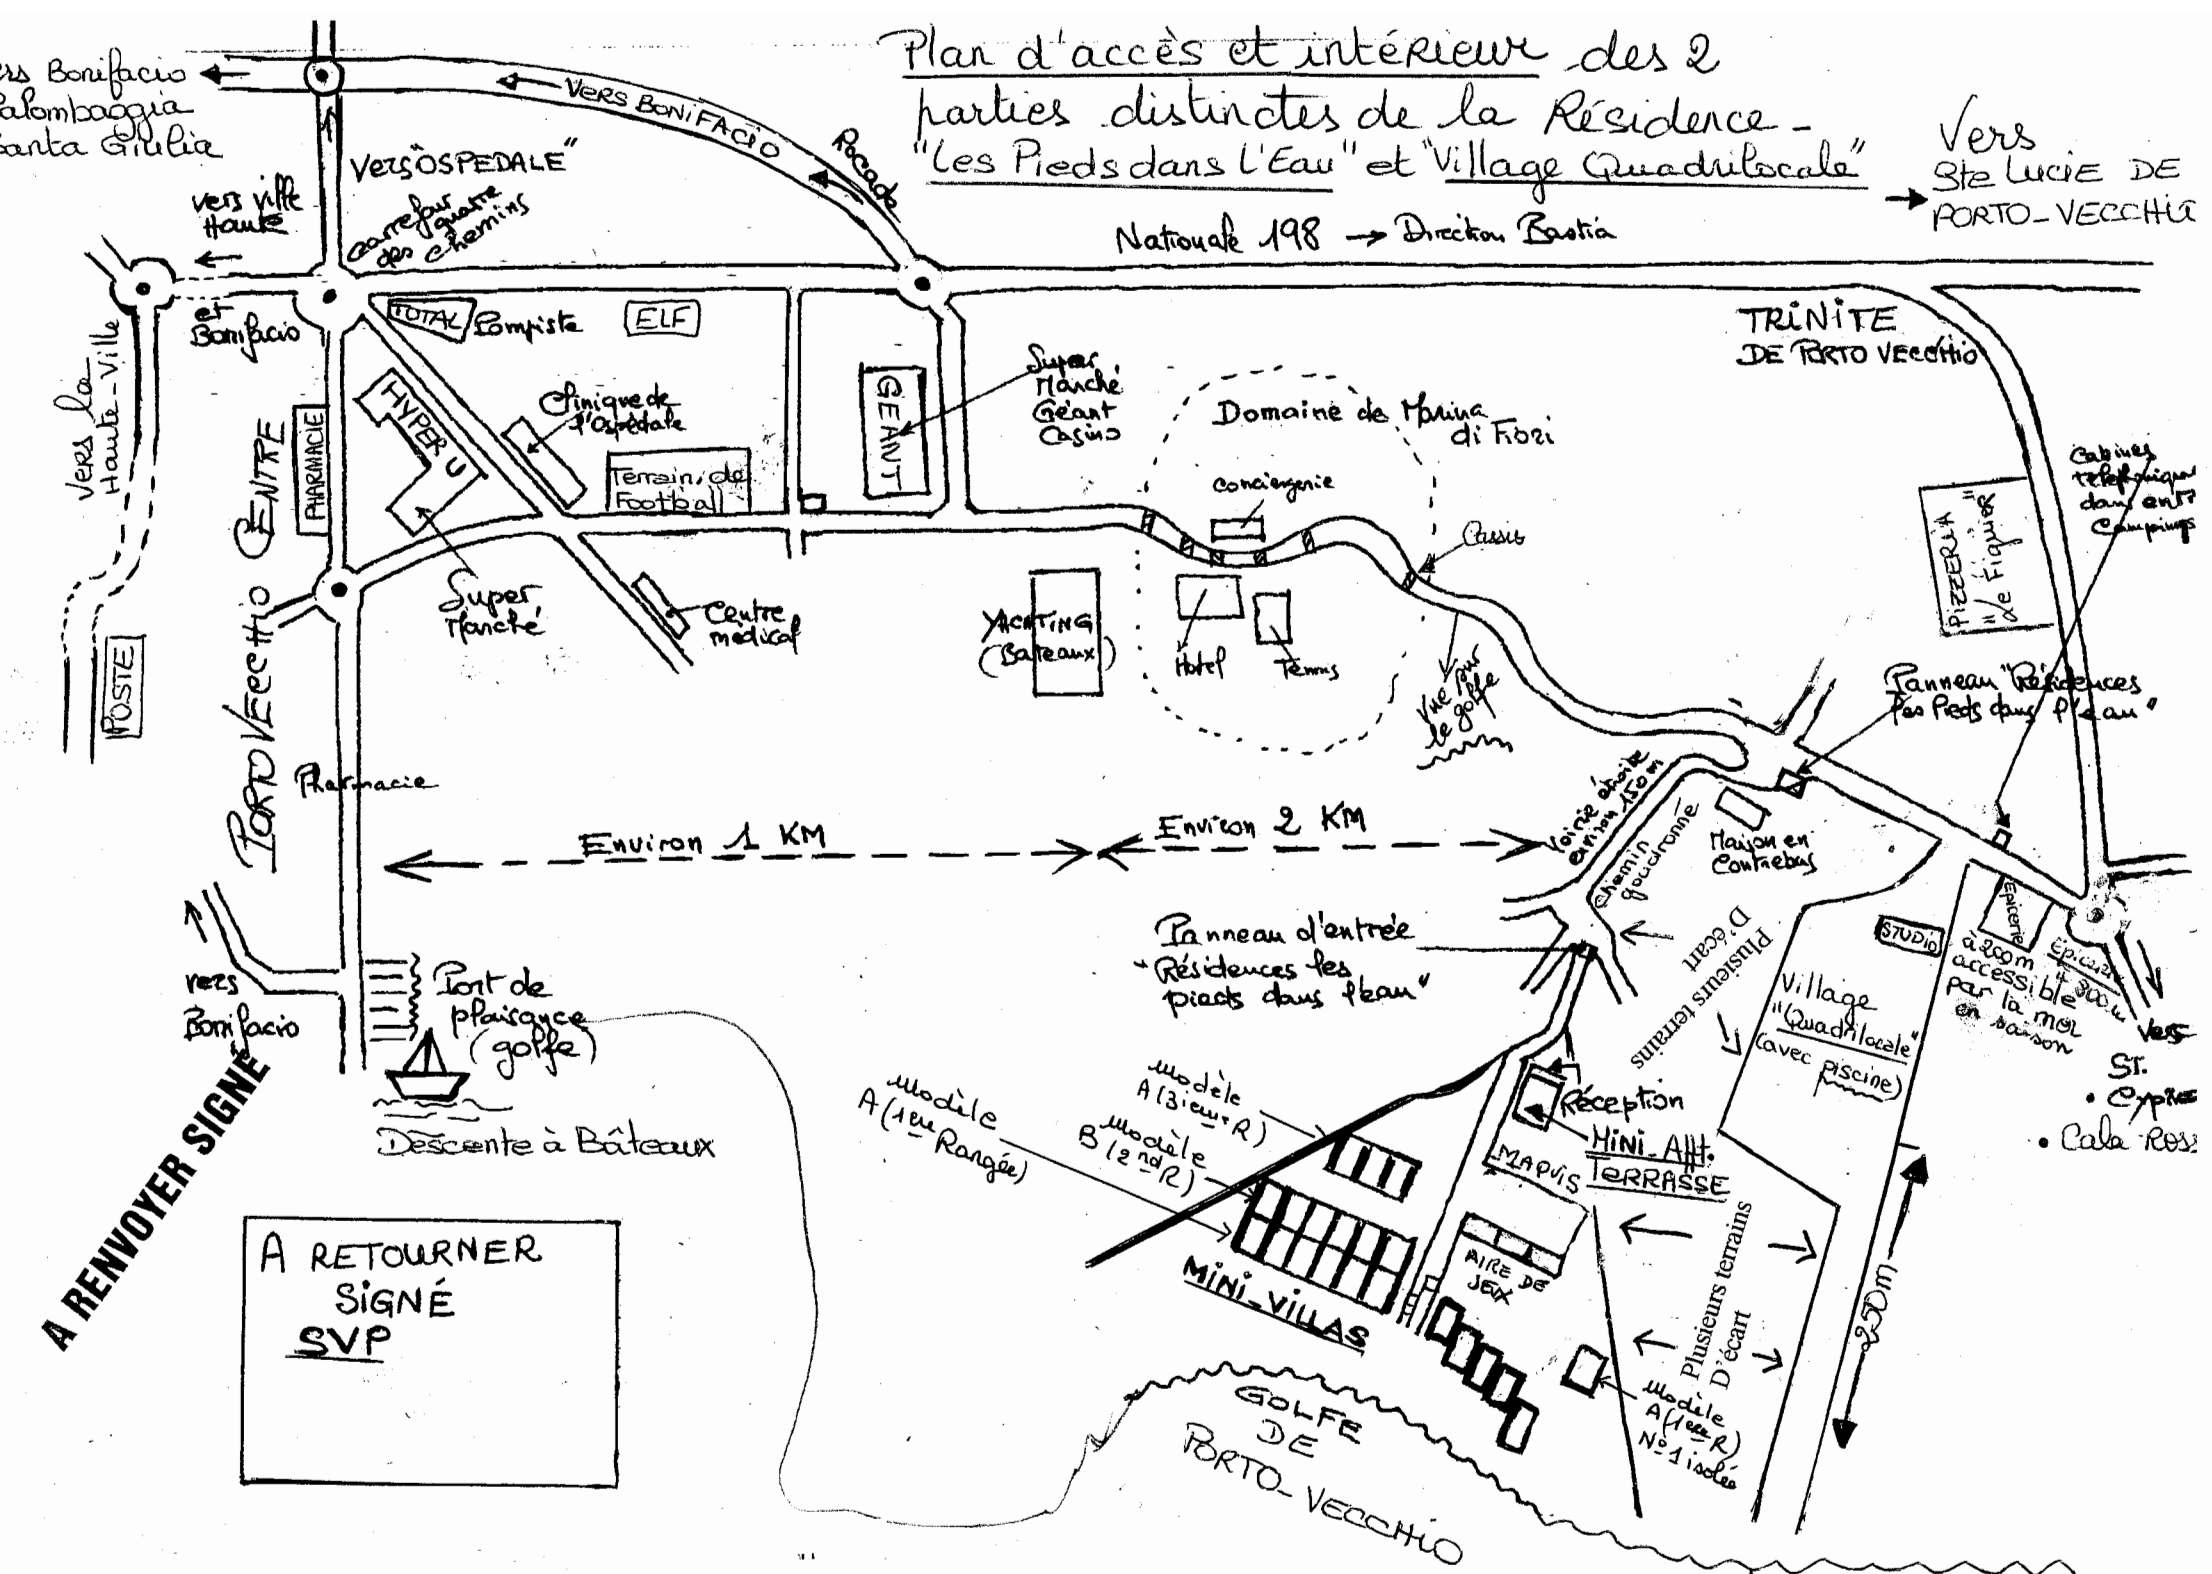 Plan d'accès et intérieur des 2
parties distinctes de la Résidence -
"Les Pieds dans L'Eau" et "Village Quadrilocale"
Vers
Ste LUCIE DE
PORTO-VECCHIO
Bonifacio
Giulia
VERS BONIFACIO
Rocade
Vers "OSPEDALE"
vers ville
Haute
carrefour
des quatre
chemins
Nationale 198 → Direction Bastia
et
Bonifacio
TOTAL
Pompiste
ELF
TRINITE
DE PORTO VECCHIO
Vers la
Haute-Ville
CENTRE
PORTO VECCHIO
PHARMACIE
HYPER U
Clinique de
l'Ospédale
Terrain de
Football
GEANT
Super
Marché
Géant
Casino
Domaine de Marina
di Fiori
Conciergerie
Cassis
Cabines
Téléphonique
dans ent
Campings
PIZZERIA
"Le Figuier"
Super
Marché
Centre
médical
YACHTING
(Bateaux)
Hotel
Tennis
Vue sur
le golfe
POSTE
Panneau "Résidences
les Pieds dans l'eau"
Pharmacie
Environ 1 KM
Environ 2 KM
Voirie étroite
environ 150m
Chemin
goudronné
Maison en
Contrebas
Panneau d'entrée
"Résidences les
pieds dans l'eau"
Plusieurs terrains
D'écart
STUDIO
Epicerie
à 200m
accessible
par la mer
en saison
Epicerie
300m
Village
"Quadrilocale"
(avec piscine)
Vers
ST.
• Cypr
• Cala Ross
vers
Bonifacio
Port de
plaisance
(golfe)
Descente à Bâteaux
A RENVOYER SIGNÉ
A RETOURNER
SIGNÉ
SVP
Modèle
A (1ere
Rangée)
Modèle
B (2nd R)
Modèle
A (3ieme R)
Réception
MINI-Att.
TERRASSE
MAQUIS
AIRE DE
JEUX
MINI-VILLAS
Plusieurs terrains
D'écart
250m
Modèle
A (1ere R)
N° 1 isolée
GOLFE
DE
PORTO-VECCHIO